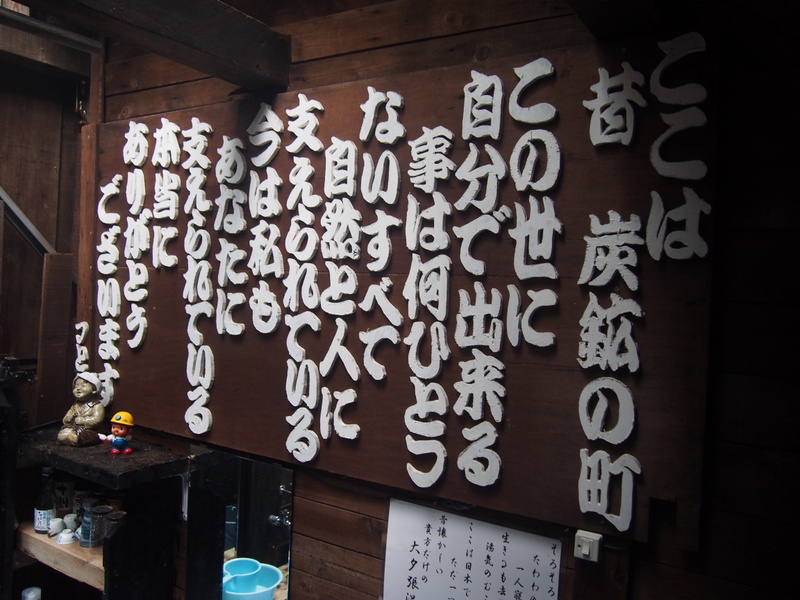 ここは
昔 炭鉱の町
この世に
自分で出来る
事は何ひとつ
ないすべて
自然と人に
支えられている
今は私も
あなたに
支えられている
本当に
ありがとう
ございます
つと
そろそろ
たわわの
一人寝
生きるも去
湯気のむこ
ここは日本で
たった一つ
昔懐かしい
貴方だけの
大夕張温